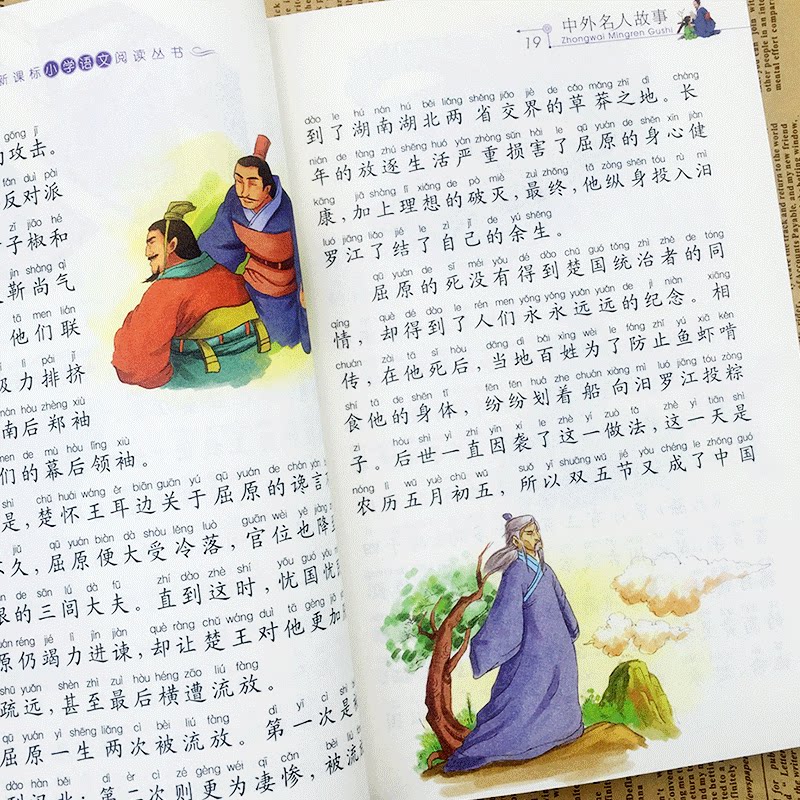 新课标小学语文阅读丛书
gōng jī
的攻击。
fǎn duì pài
反对派
zǐ jiāo hé
子椒和
jìn shàng qì
靳尚气
tā men lián
他们联
lì pái jǐ
极力排挤
nán hòu zhèng xiù
南后郑袖
men de mù hòu lǐng xiù
们的幕后领袖。
shì chǔ huái wáng ěr biān guān yú qū yuán de chán yán
是，楚怀王耳边关于屈原的谗言
jiǔ qū yuán biàn dà shòu lěng luò guān wèi yě jiàng
久，屈原便大受冷落，官位也降
de sān lǘ dà fū zhí dào zhè shí yōu guó yōu
的三闾大夫。直到这时，忧国忧
yuán réng jié lì jìn jiàn què ràng chǔ wáng duì tā gèng jiā
原仍竭力进谏，却让楚王对他更加
shū yuǎn shèn zhì zuì hòu héng zāo liú fàng
疏远，甚至最后横遭流放。
qū yuán yì shēng liǎng cì bèi liú fàng dì yī cì shì
屈原一生两次被流放。第一次是
dào hàn běi dì èr cì zé gèng wéi qī cǎn bèi liú
到汉北，第二次则更为凄惨，被流
19
中外名人故事
Zhongwai Mingren Gushi
dào le hú nán hú běi liǎng shěng jiāo jiè de cǎo mǎng zhī dì cháng
到了湖南湖北两省交界的草莽之地。长
nián de fàng zhú shēng huó yán zhòng sǔn hài le qū yuán de shēn xīn jiàn
年的放逐生活严重损害了屈原的身心健
kāng jiā shàng lǐ xiǎng de pò miè zuì zhōng tā zòng shēn tóu rù mì
康，加上理想的破灭，最终，他纵身投入汨
luó jiāng liǎo jié le zì jǐ de yú shēng
罗江了结了自己的余生。
qū yuán de sǐ méi yǒu dé dào chǔ guó tǒng zhì zhě de tóng
屈原的死没有得到楚国统治者的同
qíng què dé dào le rén men yǒng yǒng yuǎn yuǎn de jì niàn xiāng
情，却得到了人们永永远远的纪念。相
chuán zài tā sǐ hòu dāng dì bǎi xìng wèi le fáng zhǐ yú xiā kěn
传，在他死后，当地百姓为了防止鱼虾啃
shí tā de shēn tǐ fēn fēn huá zhe chuán xiàng mì luó jiāng tóu zòng
食他的身体，纷纷划着船向汨罗江投粽
zi hòu shì yì zhí yīn xí le zhè yī zuò fǎ zhè yì tiān shì
子。后世一直因袭了这一做法，这一天是
nóng lì wǔ yuè chū wǔ suǒ yǐ shuāng wǔ jié yòu chéng le zhōng guó
农历五月初五，所以双五节又成了中国